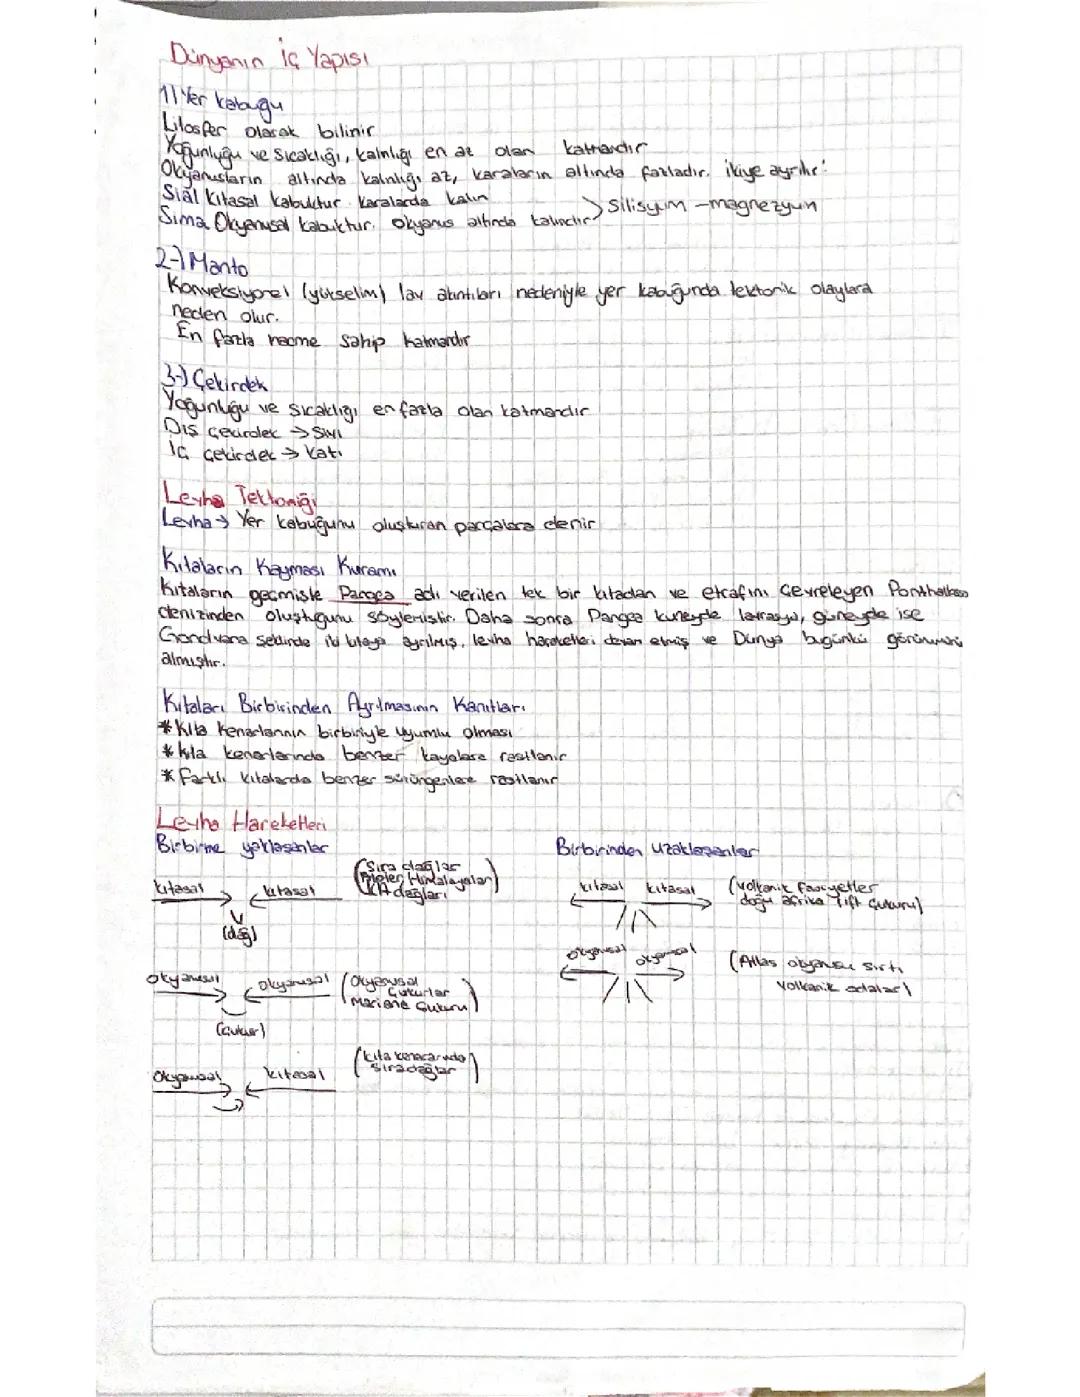 Dünyanın İç Yapısı
1) Yer kabuğu
Litosfer olarak bilinir
Yoğunluğu ve sıcaklığı, kalınlığı en az olan katmandır
Okyanusların altında kalınlığı az, karaların altında fazladır. ikiye ayrılır:
Sial Kıtasal kabuktur. Karalarda kalın
> Silisyum - magnezyum
Sima Okyanusal kabuktur. okyanus altında kalındır
2-) Manto
Konveksiyonel (yükselim) lav akıntıları nedeniyle yer kabuğunda tektonik olaylara
neden olur.
En fazla hacme sahip katmandır
3-) Çekirdek
Yoğunluğu ve sıcaklığı en fazla olan katmandır
Dış çekirdek → Sıvı
İç çekirdek → Katı
Levha Tektoniği
Levha → Yer kabuğunu oluşturan parçalara denir
Kıtaların Kayması Kuramı
Kıtaların geçmişte Pangea adı verilen tek bir kıtadan ve etrafını çevreleyen
denizinden oluştuğunu söylemiştir. Daha sonra Pangea kuzeyde lavrasya, güneyde ise
Gondvana şeklinde iki kıtaya ayrılmış, levha hareketleri devam etmiş ve Dünya bugünkü görünümünü
almıştır.
Kıtaları Birbirinden Ayrılmasının Kanıtları
* Kıta kenarlarının birbiriyle uyumlu olması
* kıta kenarlarında benzer kayalara rastlanır
* Farklı kıtalarda benzer sürüngenlere rastlanır
Levha Hareketleri
Birbirine yaklaşanlar
Birbirinden uzaklaşanlar
kıtasal → ← kıtasal (Sıra dağlar
Himalayalar)
dağları
(dağ)
kıtasal kıtasal (volkanik faaliyetler
doğu afrika rift çukuru)
okyanusal okyanusal (Okyanusal
çukurlar
Mariana Çukuru)
(çukur)
okyanusal okyanusal (Atlas okyanusu sırtı
volkanik adalar)
Okyanusal kıtasal (kıta kenarında
sıradağlar)